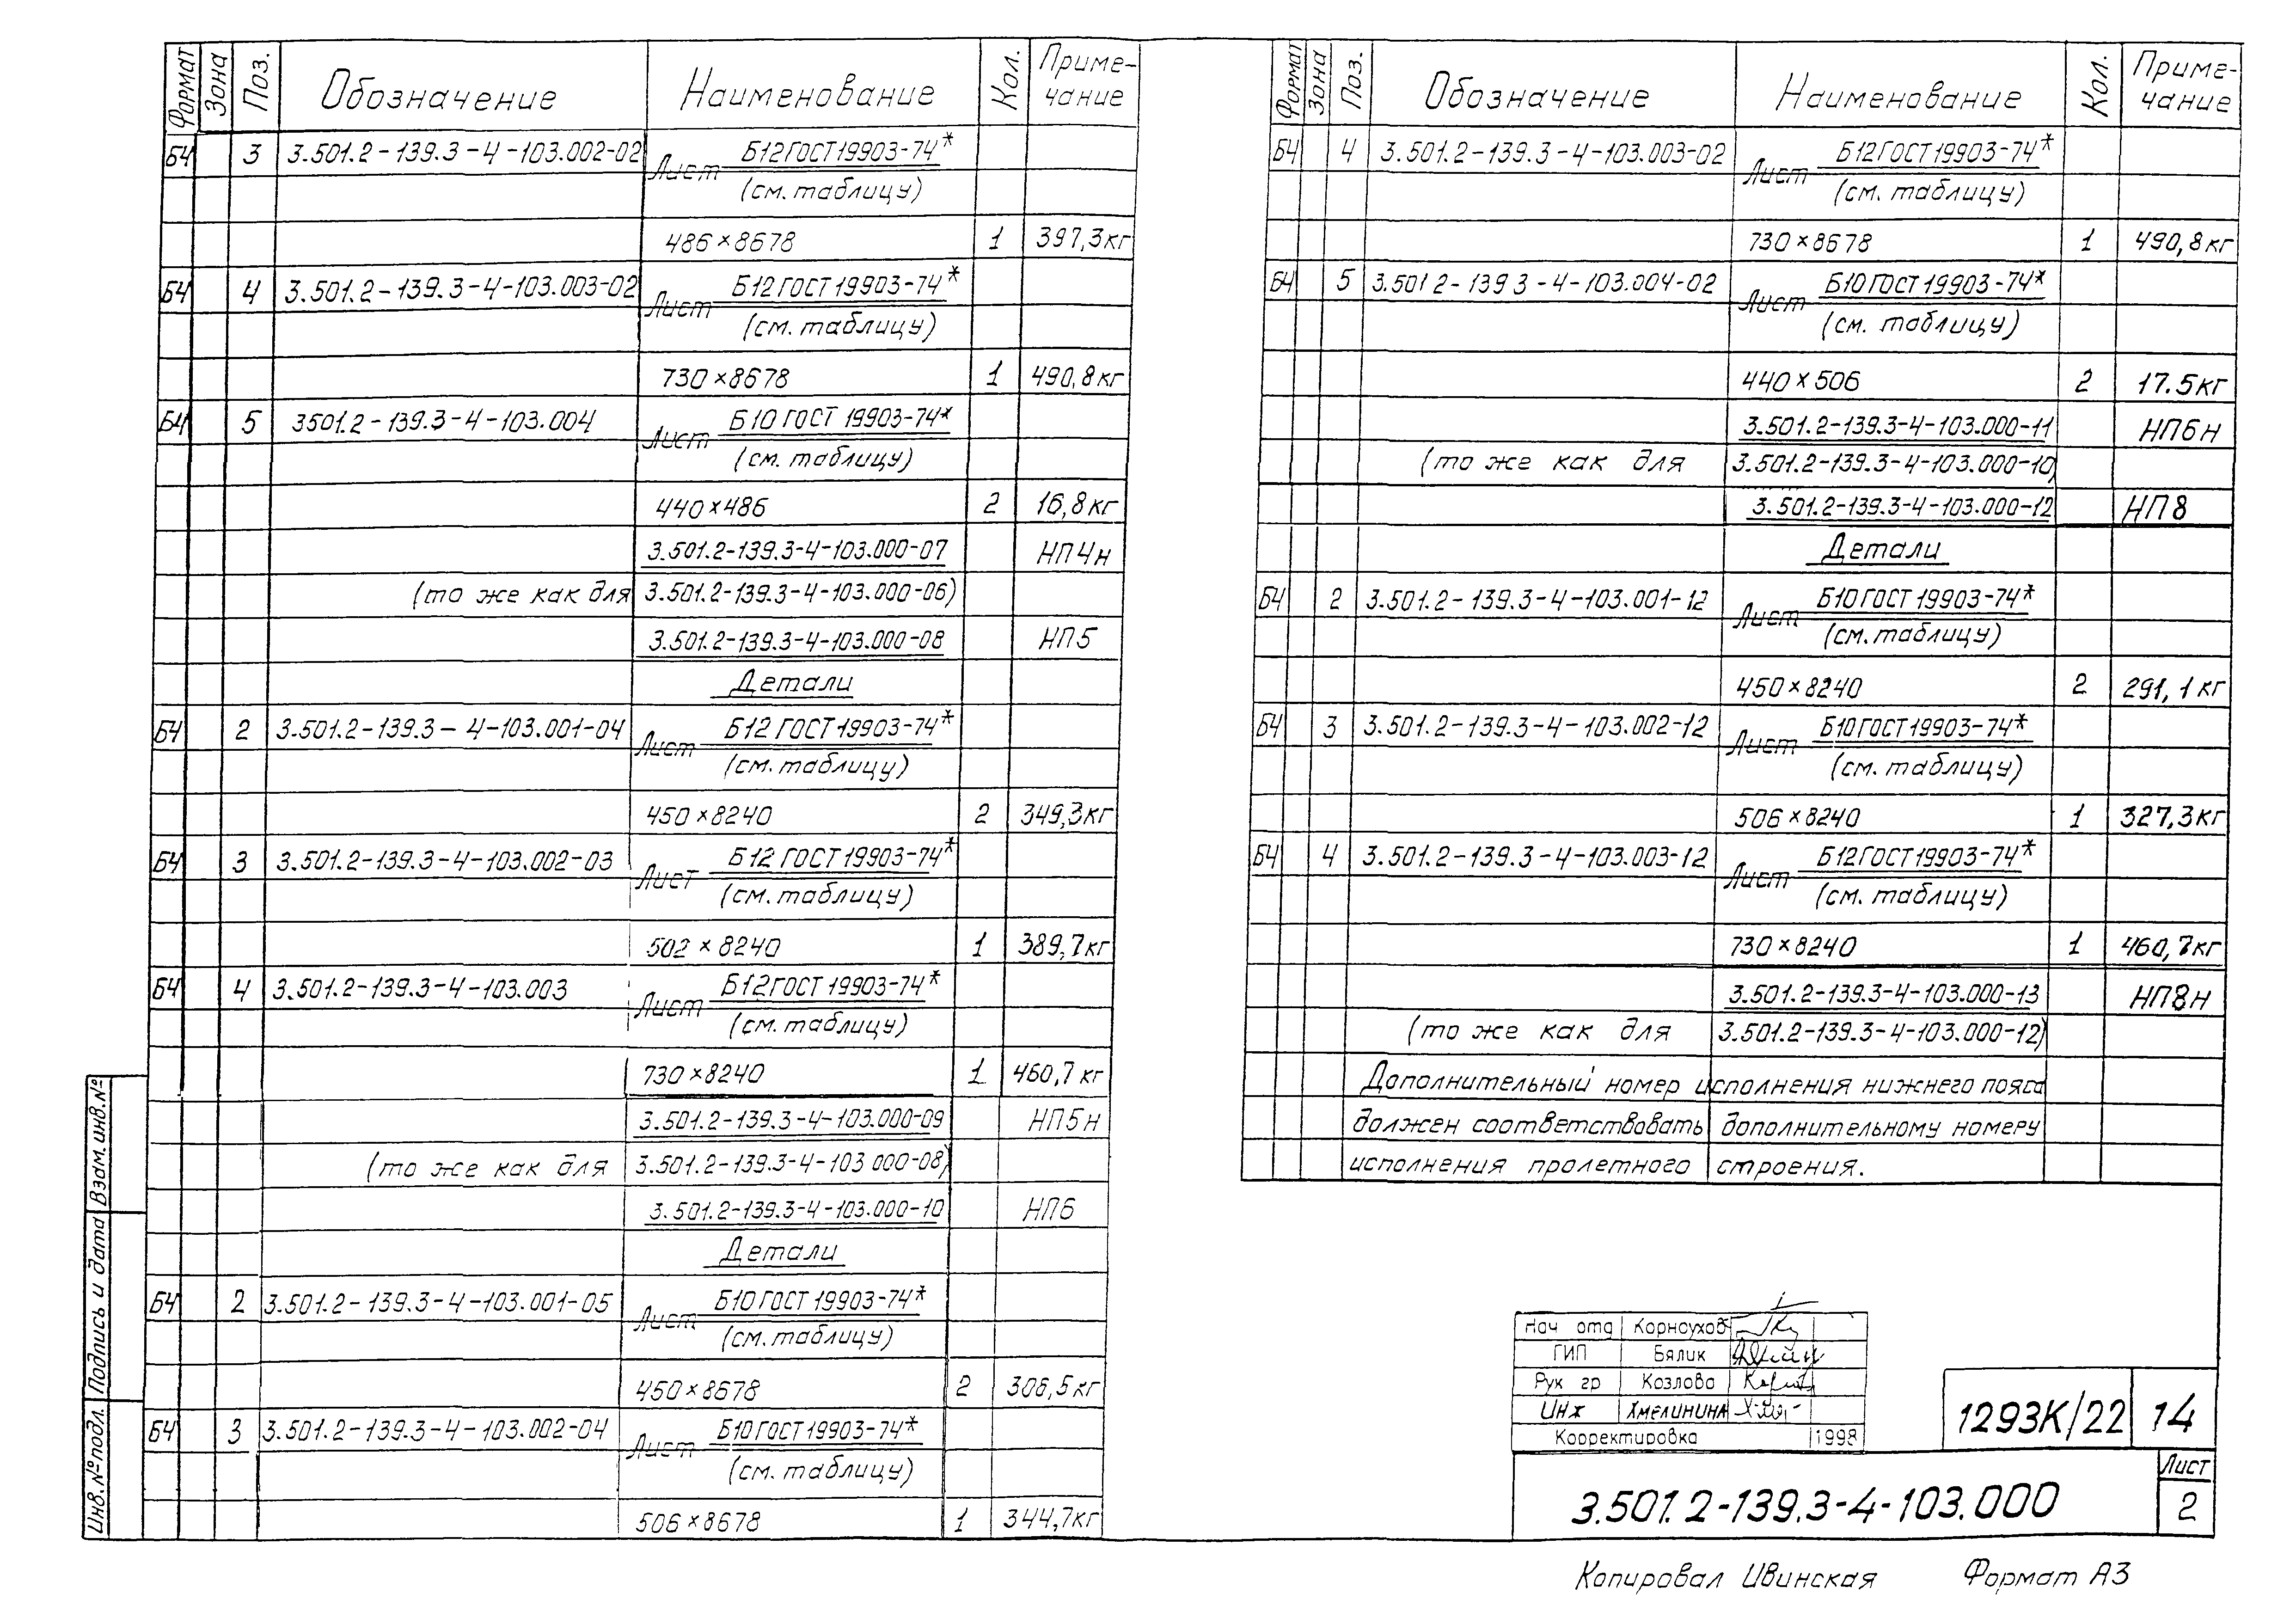 Формат Зона Поз. Обозначение Наименование Кол. Приме-
чание
БЧ 3 3.501.2-139.3-4-103.002-02 Лист Б12 ГОСТ 19903-74*
(см. таблицу)
486×8678 1 397,3кг
БЧ 4 3.501.2-139.3-4-103.003-02 Лист Б12 ГОСТ 19903-74*
(см. таблицу)
730×8678 1 490,8кг
БЧ 5 3501.2-139.3-4-103.004 Лист Б10 ГОСТ 19903-74*
(см. таблицу)
440×486 2 16,8кг
3.501.2-139.3-4-103.000-07 НП4н
(то же как для 3.501.2-139.3-4-103.000-06)
3.501.2-139.3-4-103.000-08 НП5
Детали
БЧ 2 3.501.2-139.3-4-103.001-04 Лист Б12 ГОСТ 19903-74*
(см. таблицу)
450×8240 2 349,3кг
БЧ 3 3.501.2-139.3-4-103.002-03 Лист Б12 ГОСТ 19903-74*
(см. таблицу)
502×8240 1 389,7кг
БЧ 4 3.501.2-139.3-4-103.003 Лист Б12 ГОСТ 19903-74*
(см. таблицу)
730×8240 1 460,7кг
3.501.2-139.3-4-103.000-09 НП5н
(то же как для 3.501.2-139.3-4-103 000-08)
3.501.2-139.3-4-103.000-10 НП6
Детали
БЧ 2 3.501.2-139.3-4-103.001-05 Лист Б10 ГОСТ 19903-74*
(см. таблицу)
450×8678 2 306,5кг
БЧ 3 3.501.2-139.3-4-103.002-04 Лист Б10 ГОСТ 19903-74*
(см. таблицу)
506×8678 1 344,7кг
Взам. инв. №
Подпись и дата
Инв. № подл.
Формат Зона Поз. Обозначение Наименование Кол. Приме-
чание
БЧ 4 3.501.2-139.3-4-103.003-02 Лист Б12 ГОСТ 19903-74*
(см. таблицу)
730×8678 1 490,8кг
БЧ 5 3.501 2-139 3-4-103.004-02 Лист Б10 ГОСТ 19903-74*
(см. таблицу)
440×506 2 17.5кг
3.501.2-139.3-4-103.000-11 НП6н
(то же как для 3.501.2-139.3-4-103.000-10)
3.501.2-139.3-4-103.000-12 НП8
Детали
БЧ 2 3.501.2-139.3-4-103.001-12 Лист Б10 ГОСТ 19903-74*
(см. таблицу)
450×8240 2 291,1кг
БЧ 3 3.501.2-139.3-4-103.002-12 Лист Б10 ГОСТ 19903-74*
(см. таблицу)
506×8240 1 327,3кг
БЧ 4 3.501.2-139.3-4-103.003-12 Лист Б12 ГОСТ 19903-74*
(см. таблицу)
730×8240 1 460,7кг
3.501.2-139.3-4-103.000-13 НП8н
(то же как для 3.501.2-139.3-4-103.000-12)
Дополнительный номер исполнения нижнего пояса
должен соответствовать дополнительному номеру
исполнения пролетного строения.
Нач отд Корноухов
ГИП Бялик
Рук гр Козлова
Инж Хмелинина
Корректировка 1998
1293К/22 14
3.501.2-139.3-4-103.000 Лист
2
Копировал Ивинская Формат А3